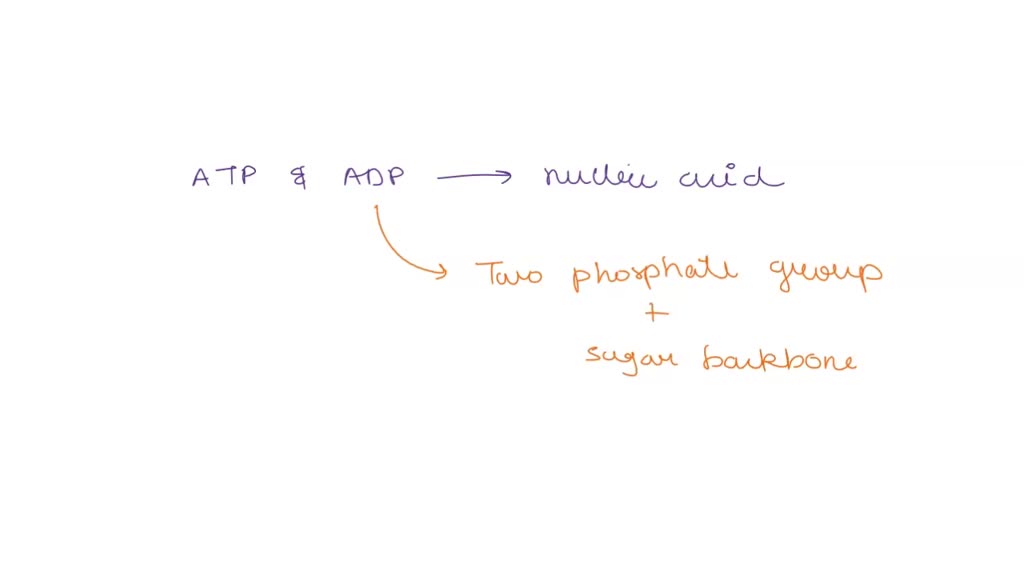 ATP & ADP → nucleic acid
Two phosphate group
+
sugar backbone